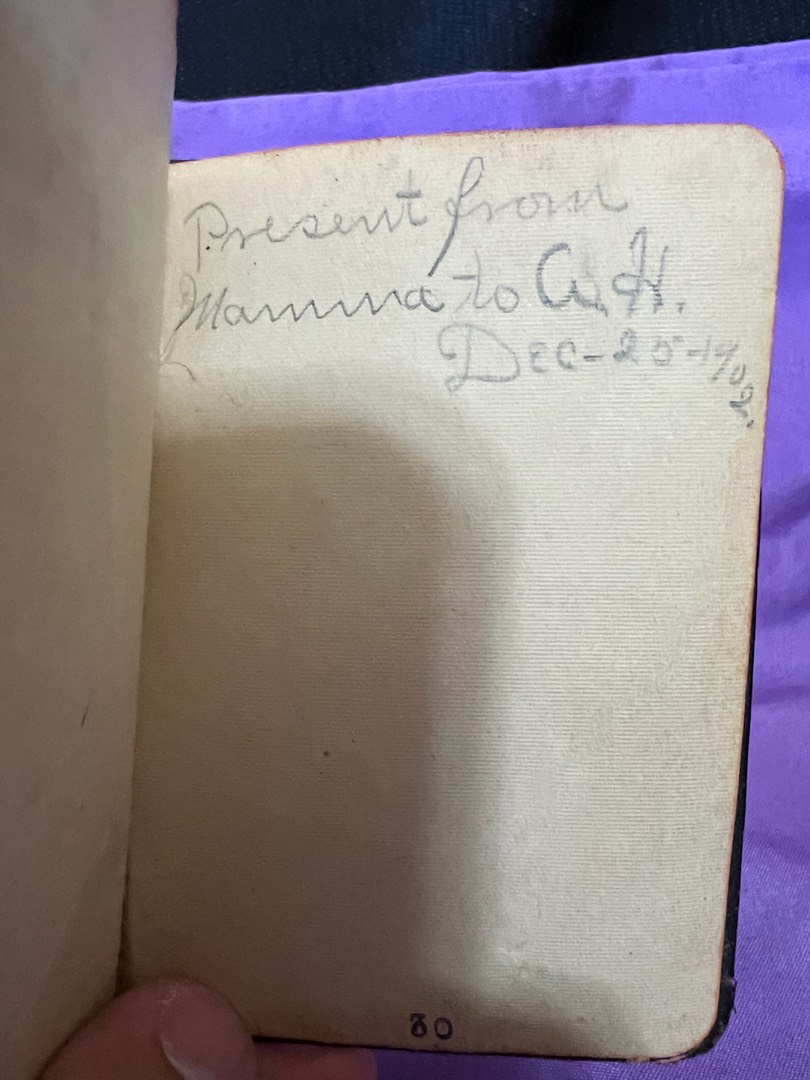 Present from
Mamma to A. H.
Dec-25-1902.
30